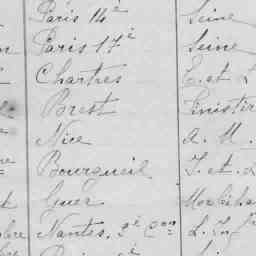 Paris 14e Seine
Paris 17e Seine
Chartres E. et L
Brest Finistèr
Nice A. M.
Bourgueil I. et L
Guer Morbiha
bre Nantes, 2e Con L. Infre